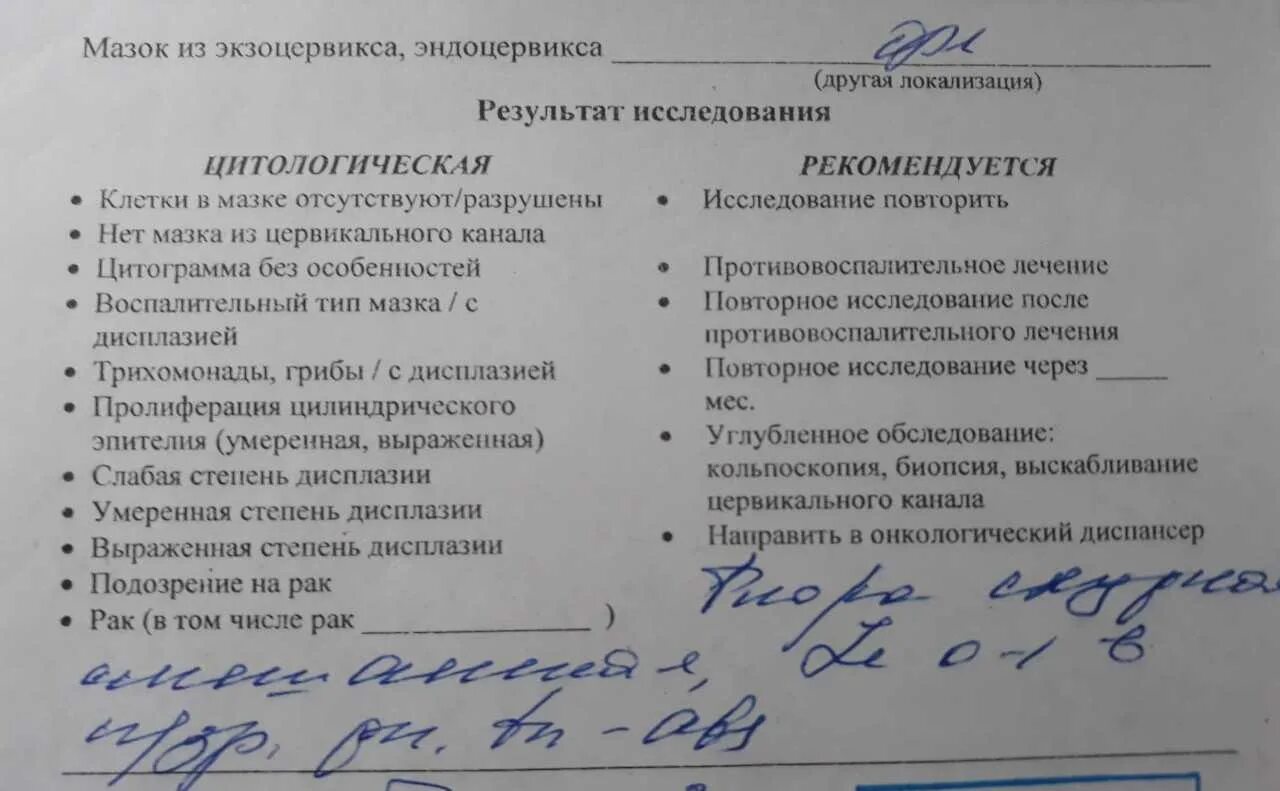 Мазок из экзоцервикса, эндоцервикса
(другая локализация)
Результат исследования
ЦИТОЛОГИЧЕСКАЯ
• Клетки в мазке отсутствуют/разрушены
• Нет мазка из цервикального канала
• Цитограмма без особенностей
• Воспалительный тип мазка / с
дисплазией
• Трихомонады, грибы / с дисплазией
• Пролиферация цилиндрического
эпителия (умеренная, выраженная)
• Слабая степень дисплазии
• Умеренная степень дисплазии
• Выраженная степень дисплазии
• Подозрение на рак
• Рак (в том числе рак ____________ )
РЕКОМЕНДУЕТСЯ
• Исследование повторить
• Противовоспалительное лечение
• Повторное исследование после
противовоспалительного лечения
• Повторное исследование через _____
мес.
• Углубленное обследование:
кольпоскопия, биопсия, выскабливание
цервикального канала
• Направить в онкологический диспансер
Флора скудная
смешанная, Le 0-1 в
п/зр. gn. tr - abs